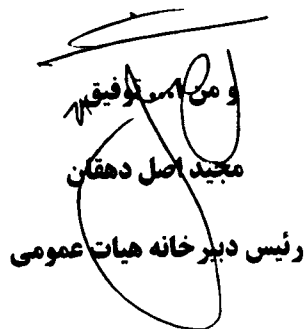 و من ا... توفیق
مجید اصل دهقان
رئیس دبیرخانه هیات عمومی